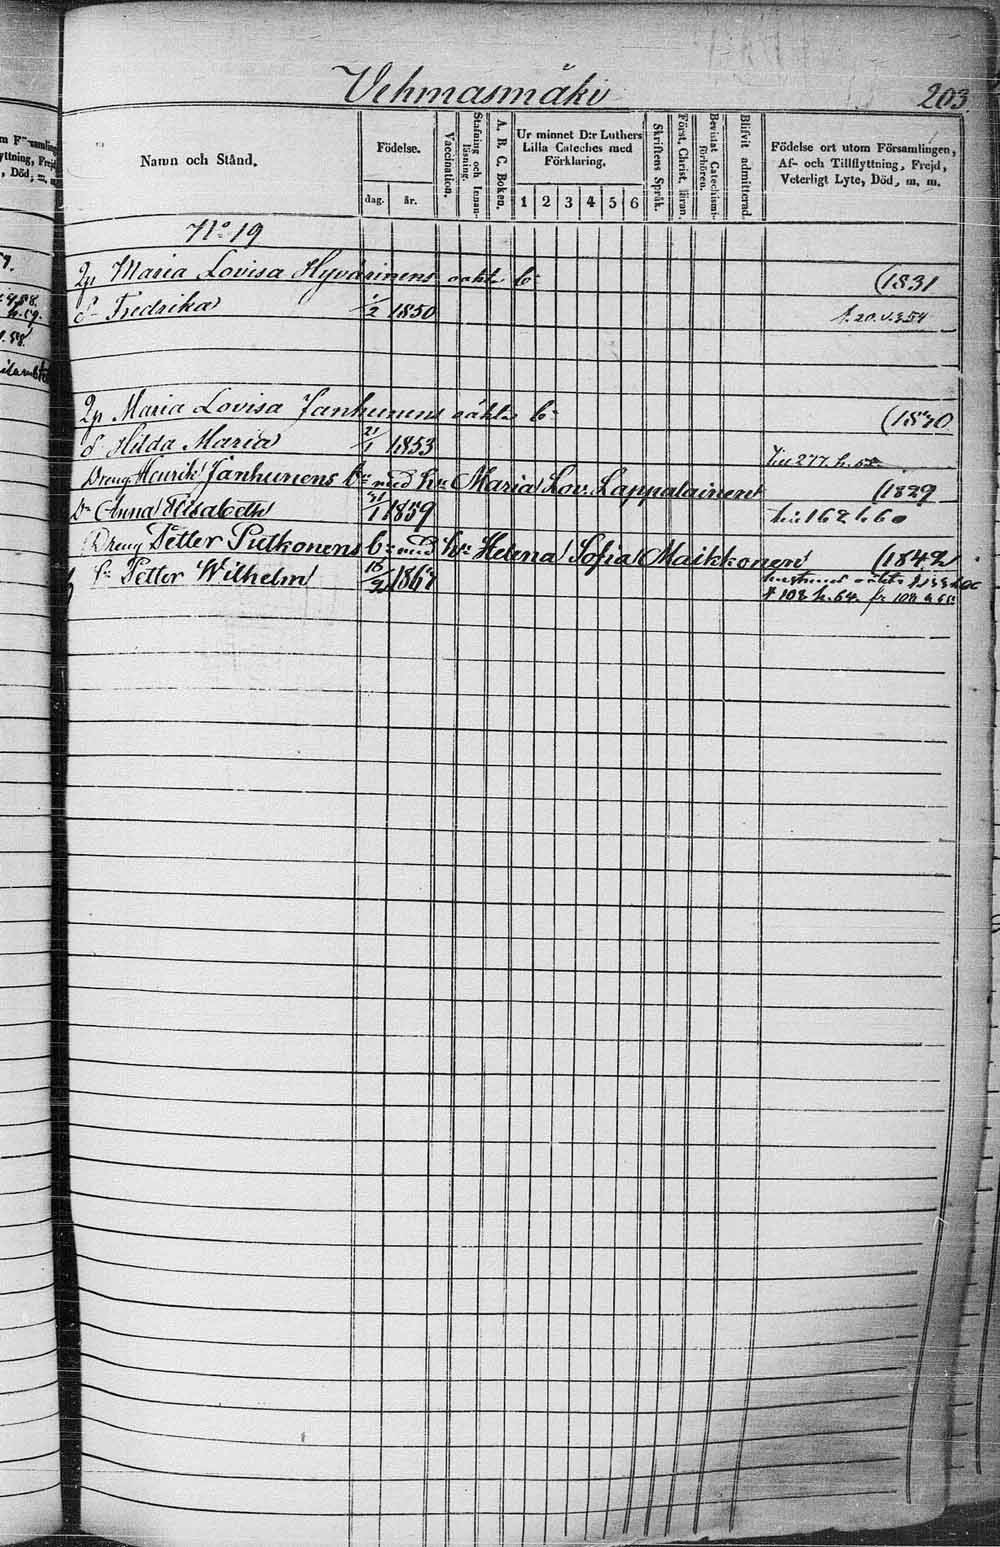 Vehmasmäki 203
Namn och Stånd.
Födelse.
dag. år.
Vaccination.
Stafning och Innan-
läsning.
A. B. C. Boken.
Ur minnet D:r Luthers
Lilla Cateches med
Förklaring.
1 2 3 4 5 6
Skriftens Språk.
Först. Christ. läran.
Bevistat Catechismi-
förhören.
Blifvit admitterad.
Födelse ort utom Församlingen,
Af- och Tillflyttning, Frejd,
Veterligt Lyte, Död, m. m.
No 19
Qp Maria Lovisa Hyvärinens oäkta b- (1831
d- Fredrika 1/2 1850
Qp Maria Lovisa Janhunens oäkta b- (1830
d- Hilda Maria 21/1 1853
Dreng Henrik Janhunens b- med h- Maria Lov. Lappalainen (1829
Dr Anna Elisabeth 31/1 1859
Dreng Petter Putkonens b- med h- Helena Sofia Maikkonen (1842
S- Petter Wilhelm 16/2 1867